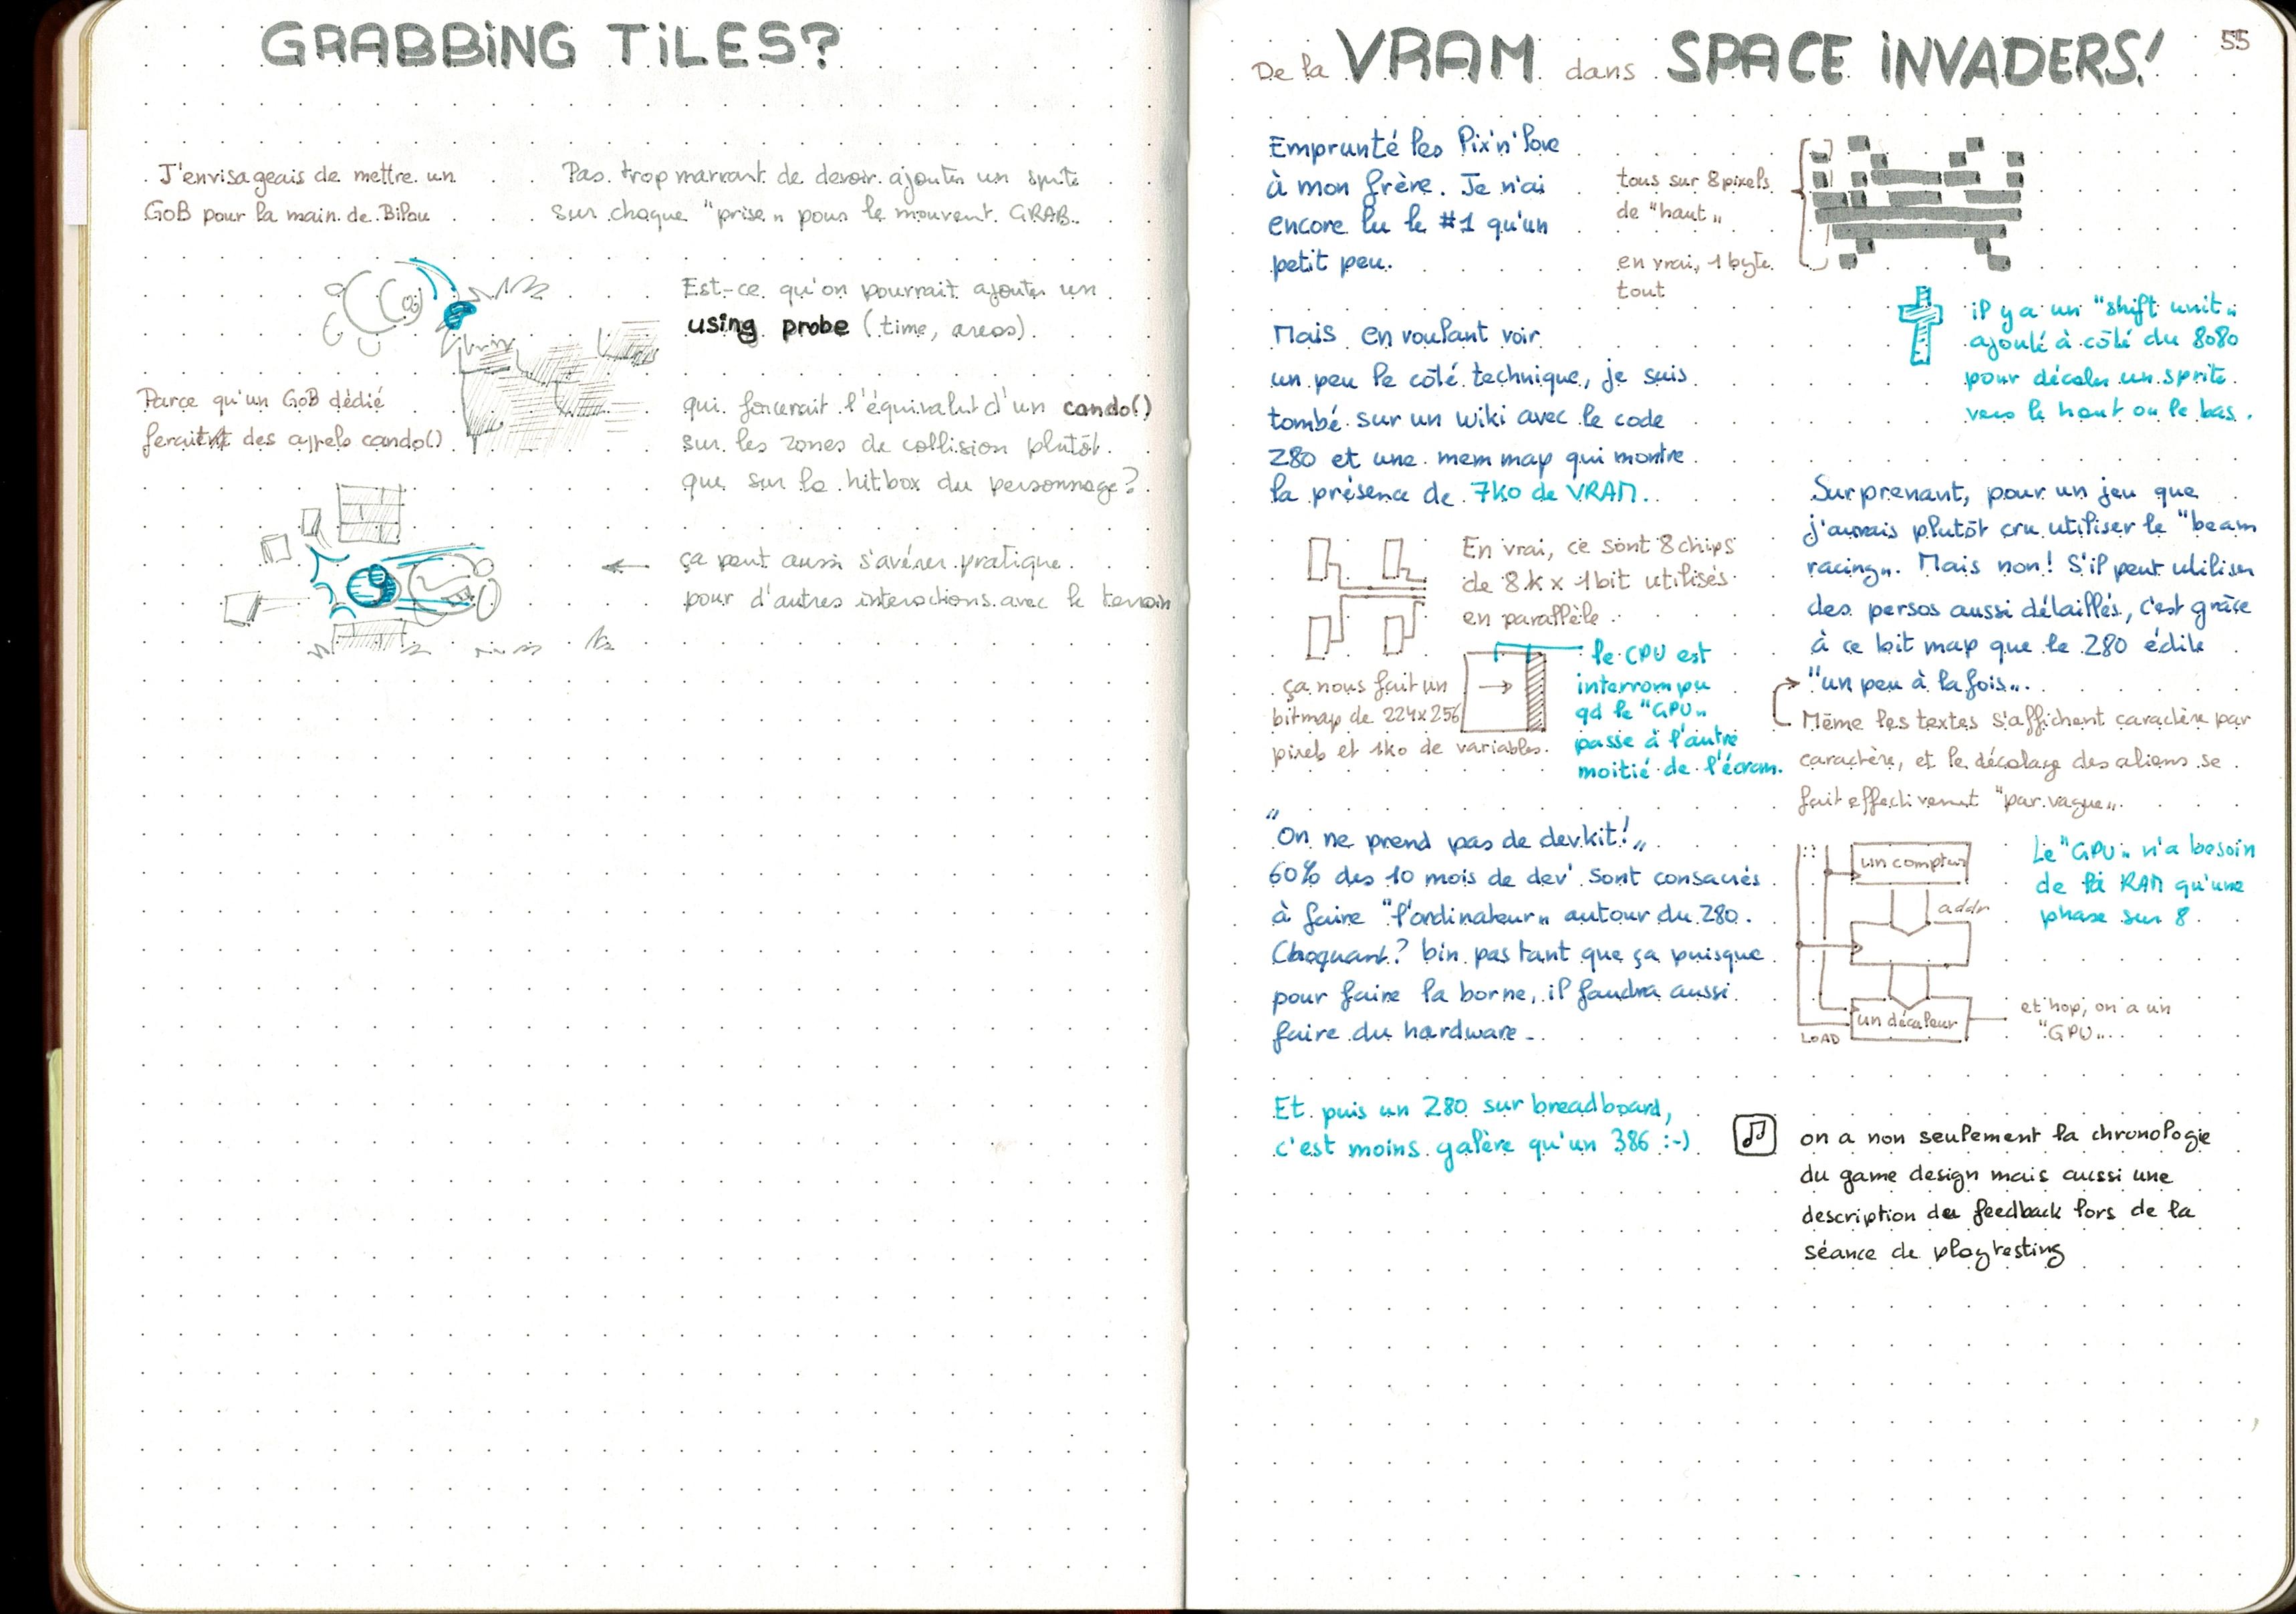 GRABBiNG TiLES?
J'envisageais de mettre un
GOB pour la main de Bilou
Pas trop marrant de devoir ajouter un sprite
sur chaque "prise" pour le mouvent GRAB.
Est-ce qu'on pourrait ajouter un
using probe (time, areas).
Parce qu'un GOB dédié
ferait des appels cando()
qui forcerait l'équivalut d'un cando()
sur les zones de collision plutôt
que sur la hitbox du personnage?
ça peut aussi s'avérer pratique
pour d'autres interactions avec le terrain
55
De la VRAM dans SPACE iNVADERS!
Emprunté les Pix'n'Love
à mon frère. Je n'ai
encore lu le #1 qu'un
petit peu.
tous sur 8 pixels
de "haut"
en vrai, 1 byte
tout
il y a un "shift unit"
ajouté à côté du 8080
pour décaler un sprite
vers le haut ou le bas.
Mais en voulant voir
un peu le côté technique, je suis
tombé sur un wiki avec le code
Z80 et une mem map qui montre
la présence de 7ko de VRAM.
En vrai, ce sont 8 chips
de 8k x 1bit utilisés
en parallèle.
ça nous fait un
bitmap de 224x256
pixels et 1ko de variables.
le CPU est
interrompu
qd le "GPU"
passe à l'autre
moitié de l'écran.
Surprenant, pour un jeu que
j'aurais plutôt cru utiliser le "beam
racing". Mais non! S'il peut utiliser
des persos aussi détaillés, c'est grâce
à ce bit map que le Z80 édite
"un peu à la fois".
Même les textes s'affichent caractère par
caractère, et le décalage des aliens se
fait effectivement "par vague".
"On ne prend pas de devkit!"
60% des 10 mois de dev' sont consacrés
à faire "l'ordinateur" autour du Z80.
Choquant? bin pas tant que ça puisque
pour faire la borne, il faudra aussi
faire du hardware.
Et puis un Z80 sur breadboard,
c'est moins galère qu'un 386 :-)
un compteur
addr
un décaleur
LOAD
Le "GPU" n'a besoin
de la RAM qu'une
phase sur 8.
et hop, on a un
"GPU".
on a non seulement la chronologie
du game design mais aussi une
description du feedback lors de la
séance de playtesting